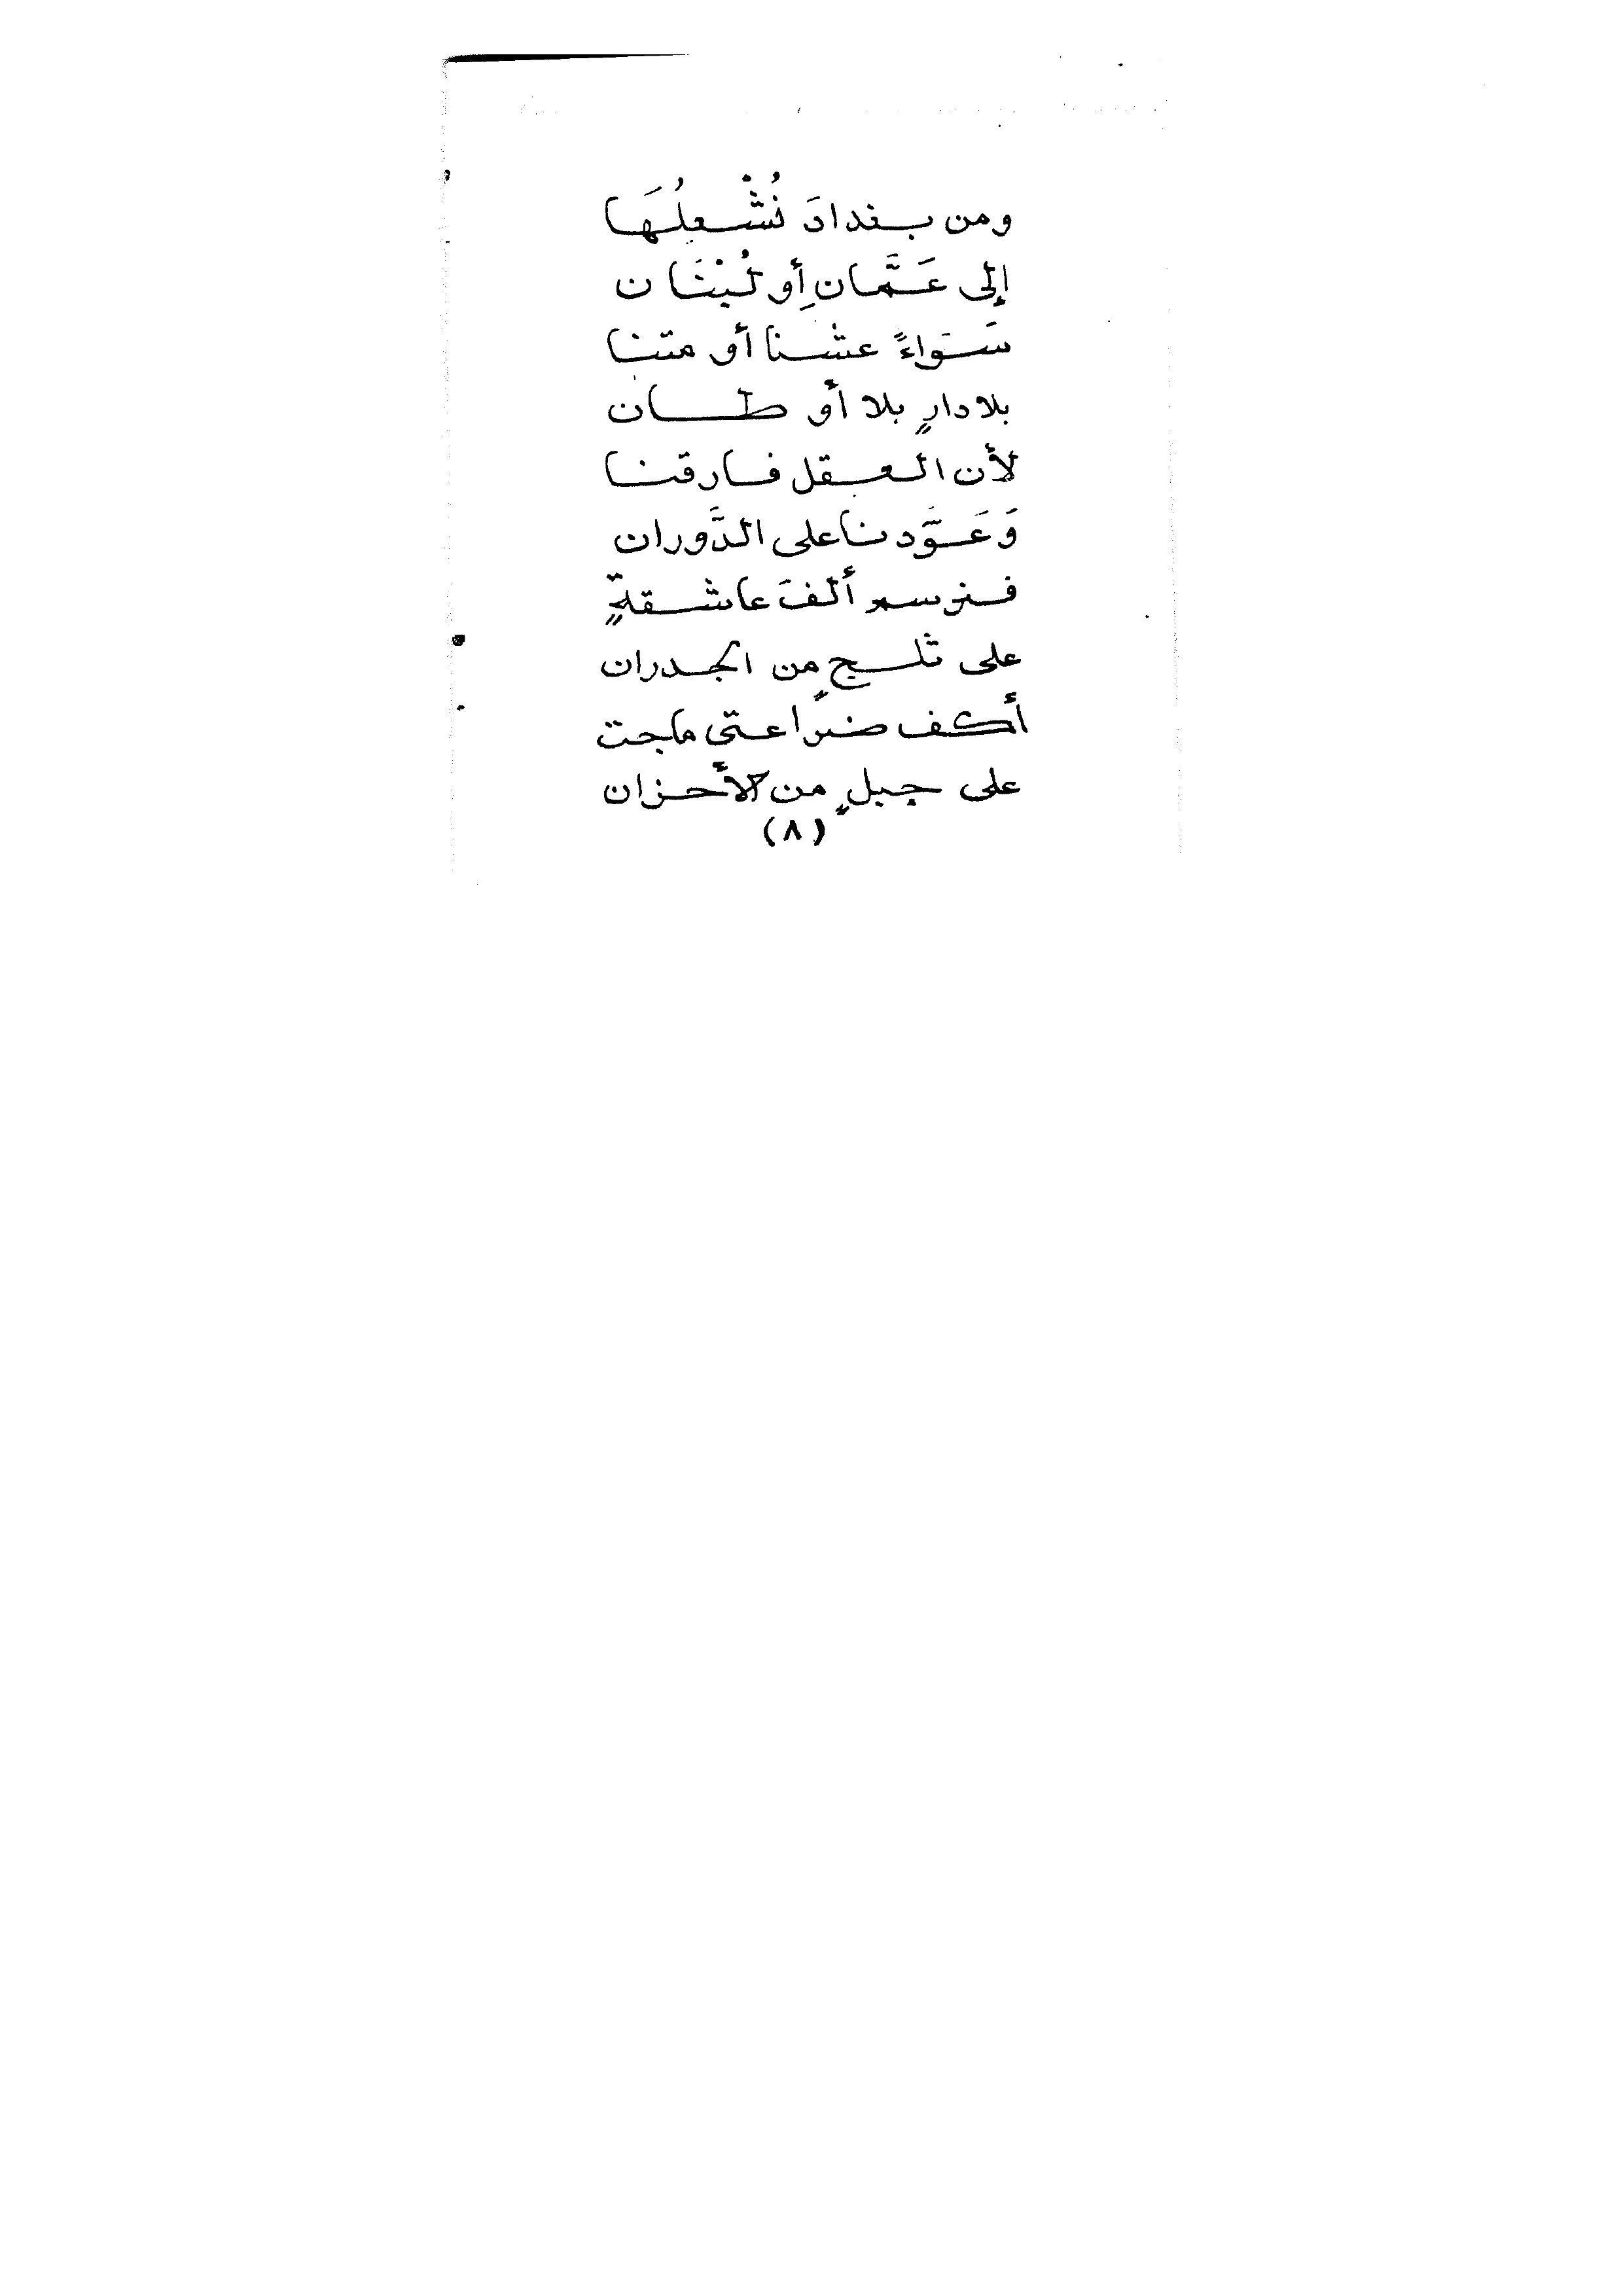 ومن بغدادَ نُشْعِلُهَا
إلى عَمَّانِ أو لُبْنَان
سَوَاءً عشنا أو متنا
بلا دارٍ بلا أوطان
لأن العقل فارقنا
وَعَوَّدنا على الدَّوران
فنرسم ألفَ عاشقةٍ
على ثلجٍ من الجدران
أكف ضراعتي ماجت
على جبلٍ من الأحزان
(٨)